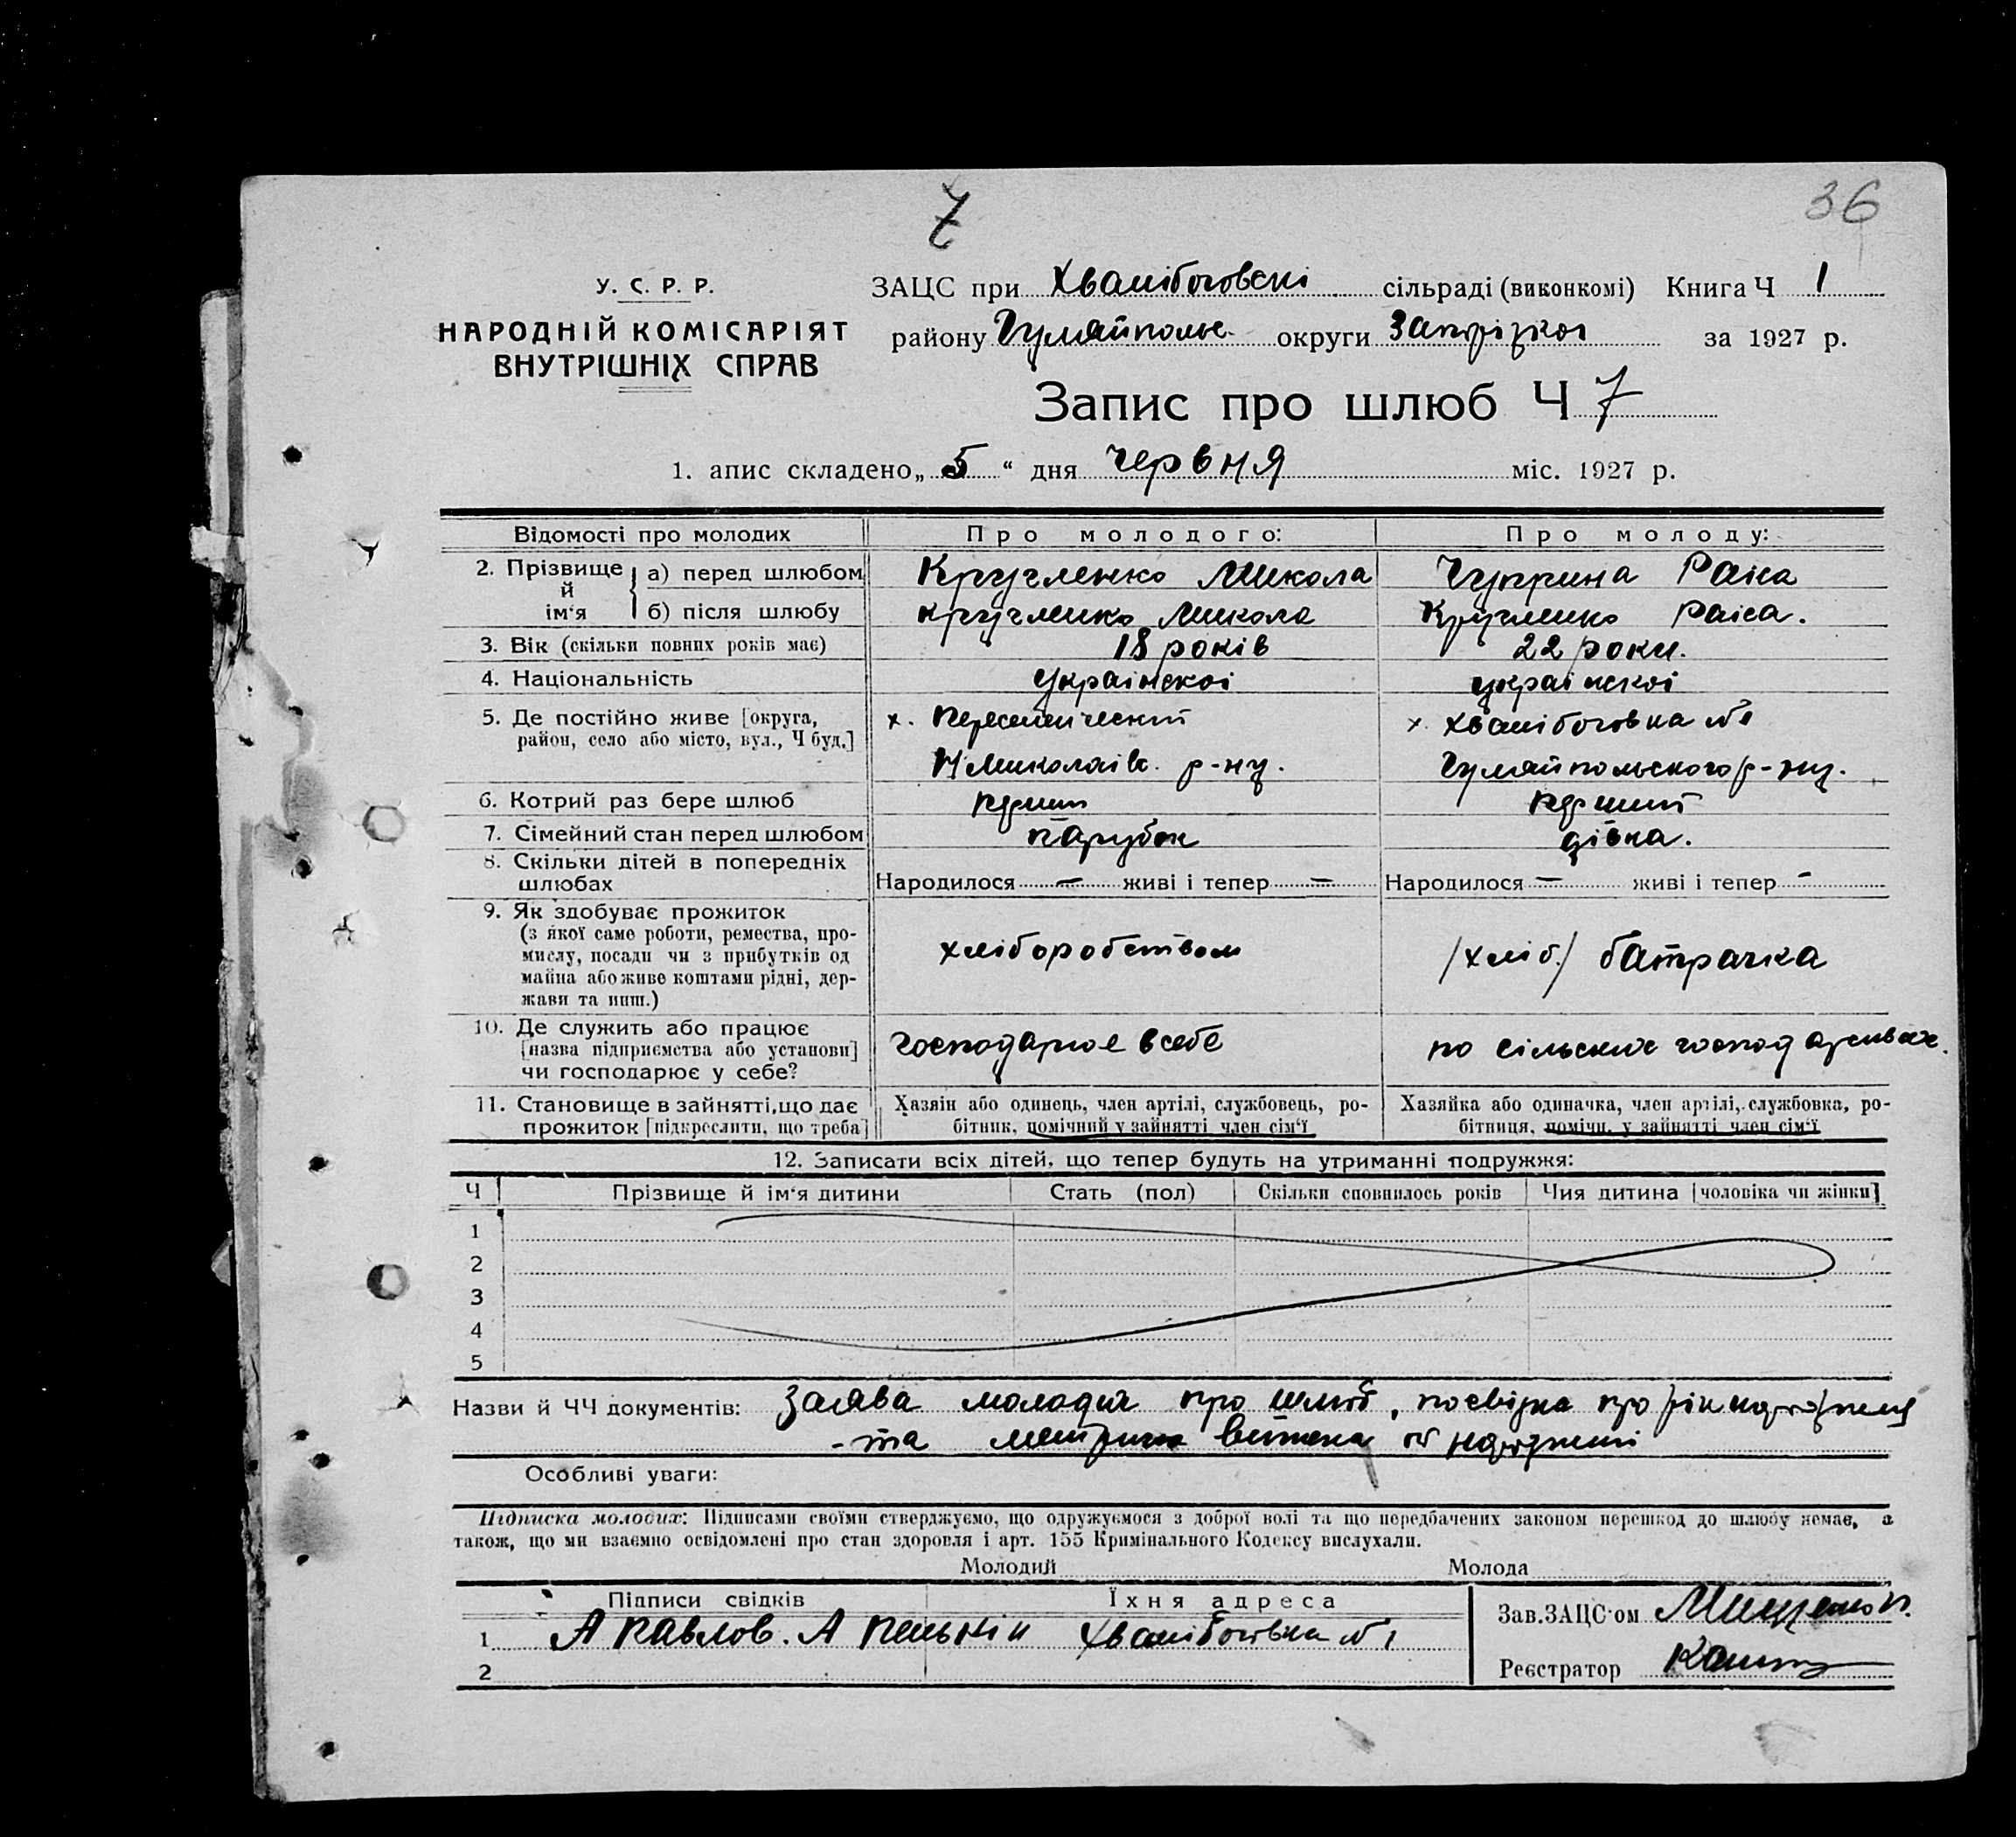 7
36
У. С. Р. Р.
НАРОДНІЙ КОМІСАРІЯТ
ВНУТРІШНІХ СПРАВ
ЗАЦС при Хвалібоговскі сільраді (виконкомі) Книга Ч 1
району Гуляйполье округи Запорізкої за 1927 р.
Запис про шлюб Ч 7
1. апис складено „ 5 “ дня червня міс. 1927 р.
Відомості про молодих Про молодого: Про молоду:
2. Прізвище й ім‘я а) перед шлюбом Кругленко Микола Чуприна Раиса
б) після шлюбу Кругленко Микола Кругленко Раіса.
3. Вік (скільки повних років має) 18 років 22 роки.
4. Національність Украінскоі украінскоі
5. Де постійно живе [округа, х. х. Хвалібоговка №1
район, село або місто, вул., Ч буд.]
Н Миколаів. р-ну. Гуляйпольского р-ну.
6. Котрий раз бере шлюб перший перший
7. Сімейний стан перед шлюбом парубок дівка.
8. Скільки дітей в попередніх
шлюбах Народилося — живі і тепер — Народилося — живі і тепер -
9. Як здобуває прожиток
(з якої саме роботи, ремества, про-
мислу, посади чи з прибутків од хліборобством /хліб./ батрачка
майна або живе коштами рідні, дер-
жави та инш.)
10. Де служить або працює
[назва підприємства або установи] господарює в себе по сільских
чи господарює у себе?
11. Становище в зайнятті, що дає Хазяїн або одинець, член артілі, службовець, ро- Хазяйка або одиначка, член артілі, службовка, ро-
прожиток [підкреслити, що треба] бітник, помічний у зайнятті член сім‘ї бітниця, помічн. у зайнятті член сім‘ї
12. Записати всіх дітей, що тепер будуть на утриманні подружжя:
Ч Прізвище й ім‘я дитини Стать (пол) Скільки сповнилось років Чия дитина [чоловіка чи жінки]
1
2
3
4
5
Назви й ЧЧ документів: Заява молодих про шлюб, посвідка про рік народження
- та об народженні
Особливі уваги:
Підписка молодих: Підписами своїми стверджуємо, що одружуємося з доброї волі та що передбачених законом перешкод до шлюбу немає, а
також, що ми взаємно освідомлені про стан здоровля і арт. 155 Кримінального Кодексу вислухали.
Молодий Молода
Підписи свідків Їхня адреса
Зав. ЗАЦС‘ом
1 А Павлов. А Хвалібоговка №1
2 Реєстратор